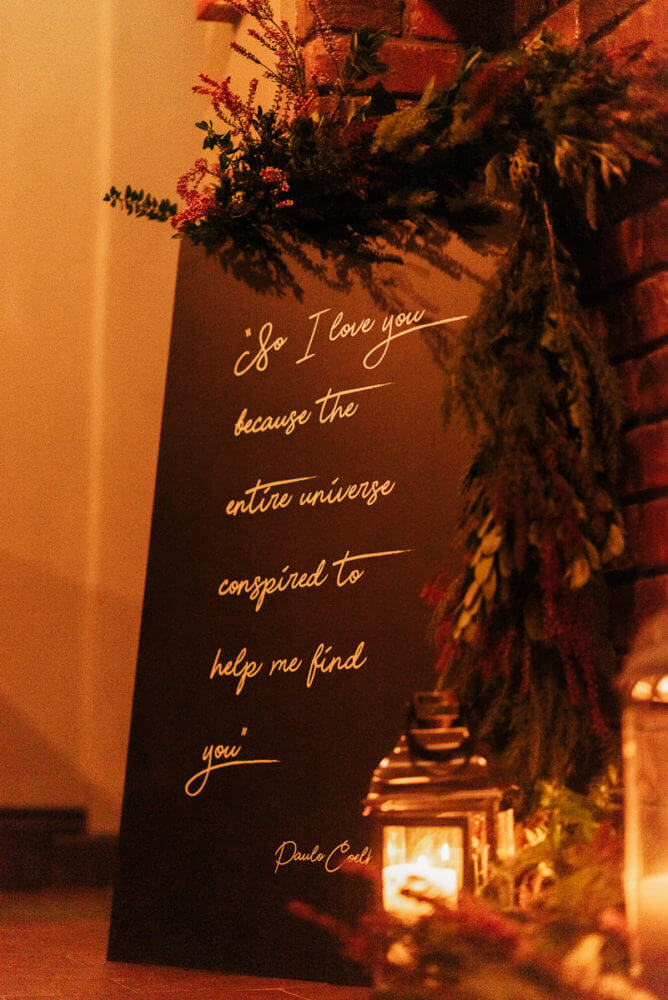 "So I love you
because the
entire universe
conspired to
help me find
you"
Paulo Coel